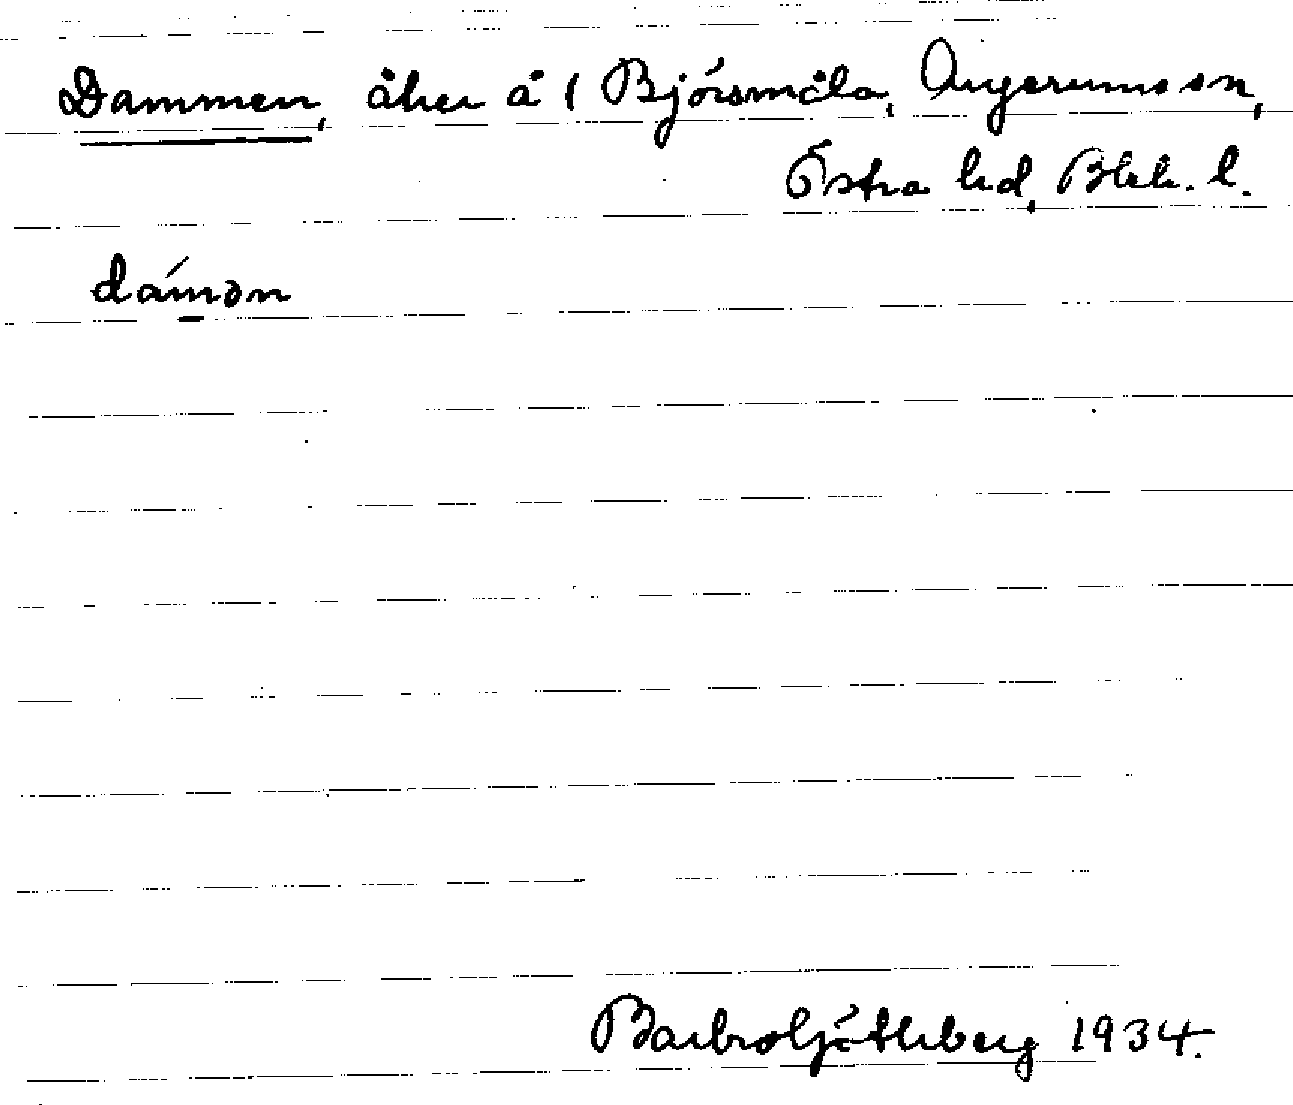 Dammen, åker å 1 Björsmåla, Augerums sn,
Östra hd, Blek. l.
dámən
Barbro 1934.